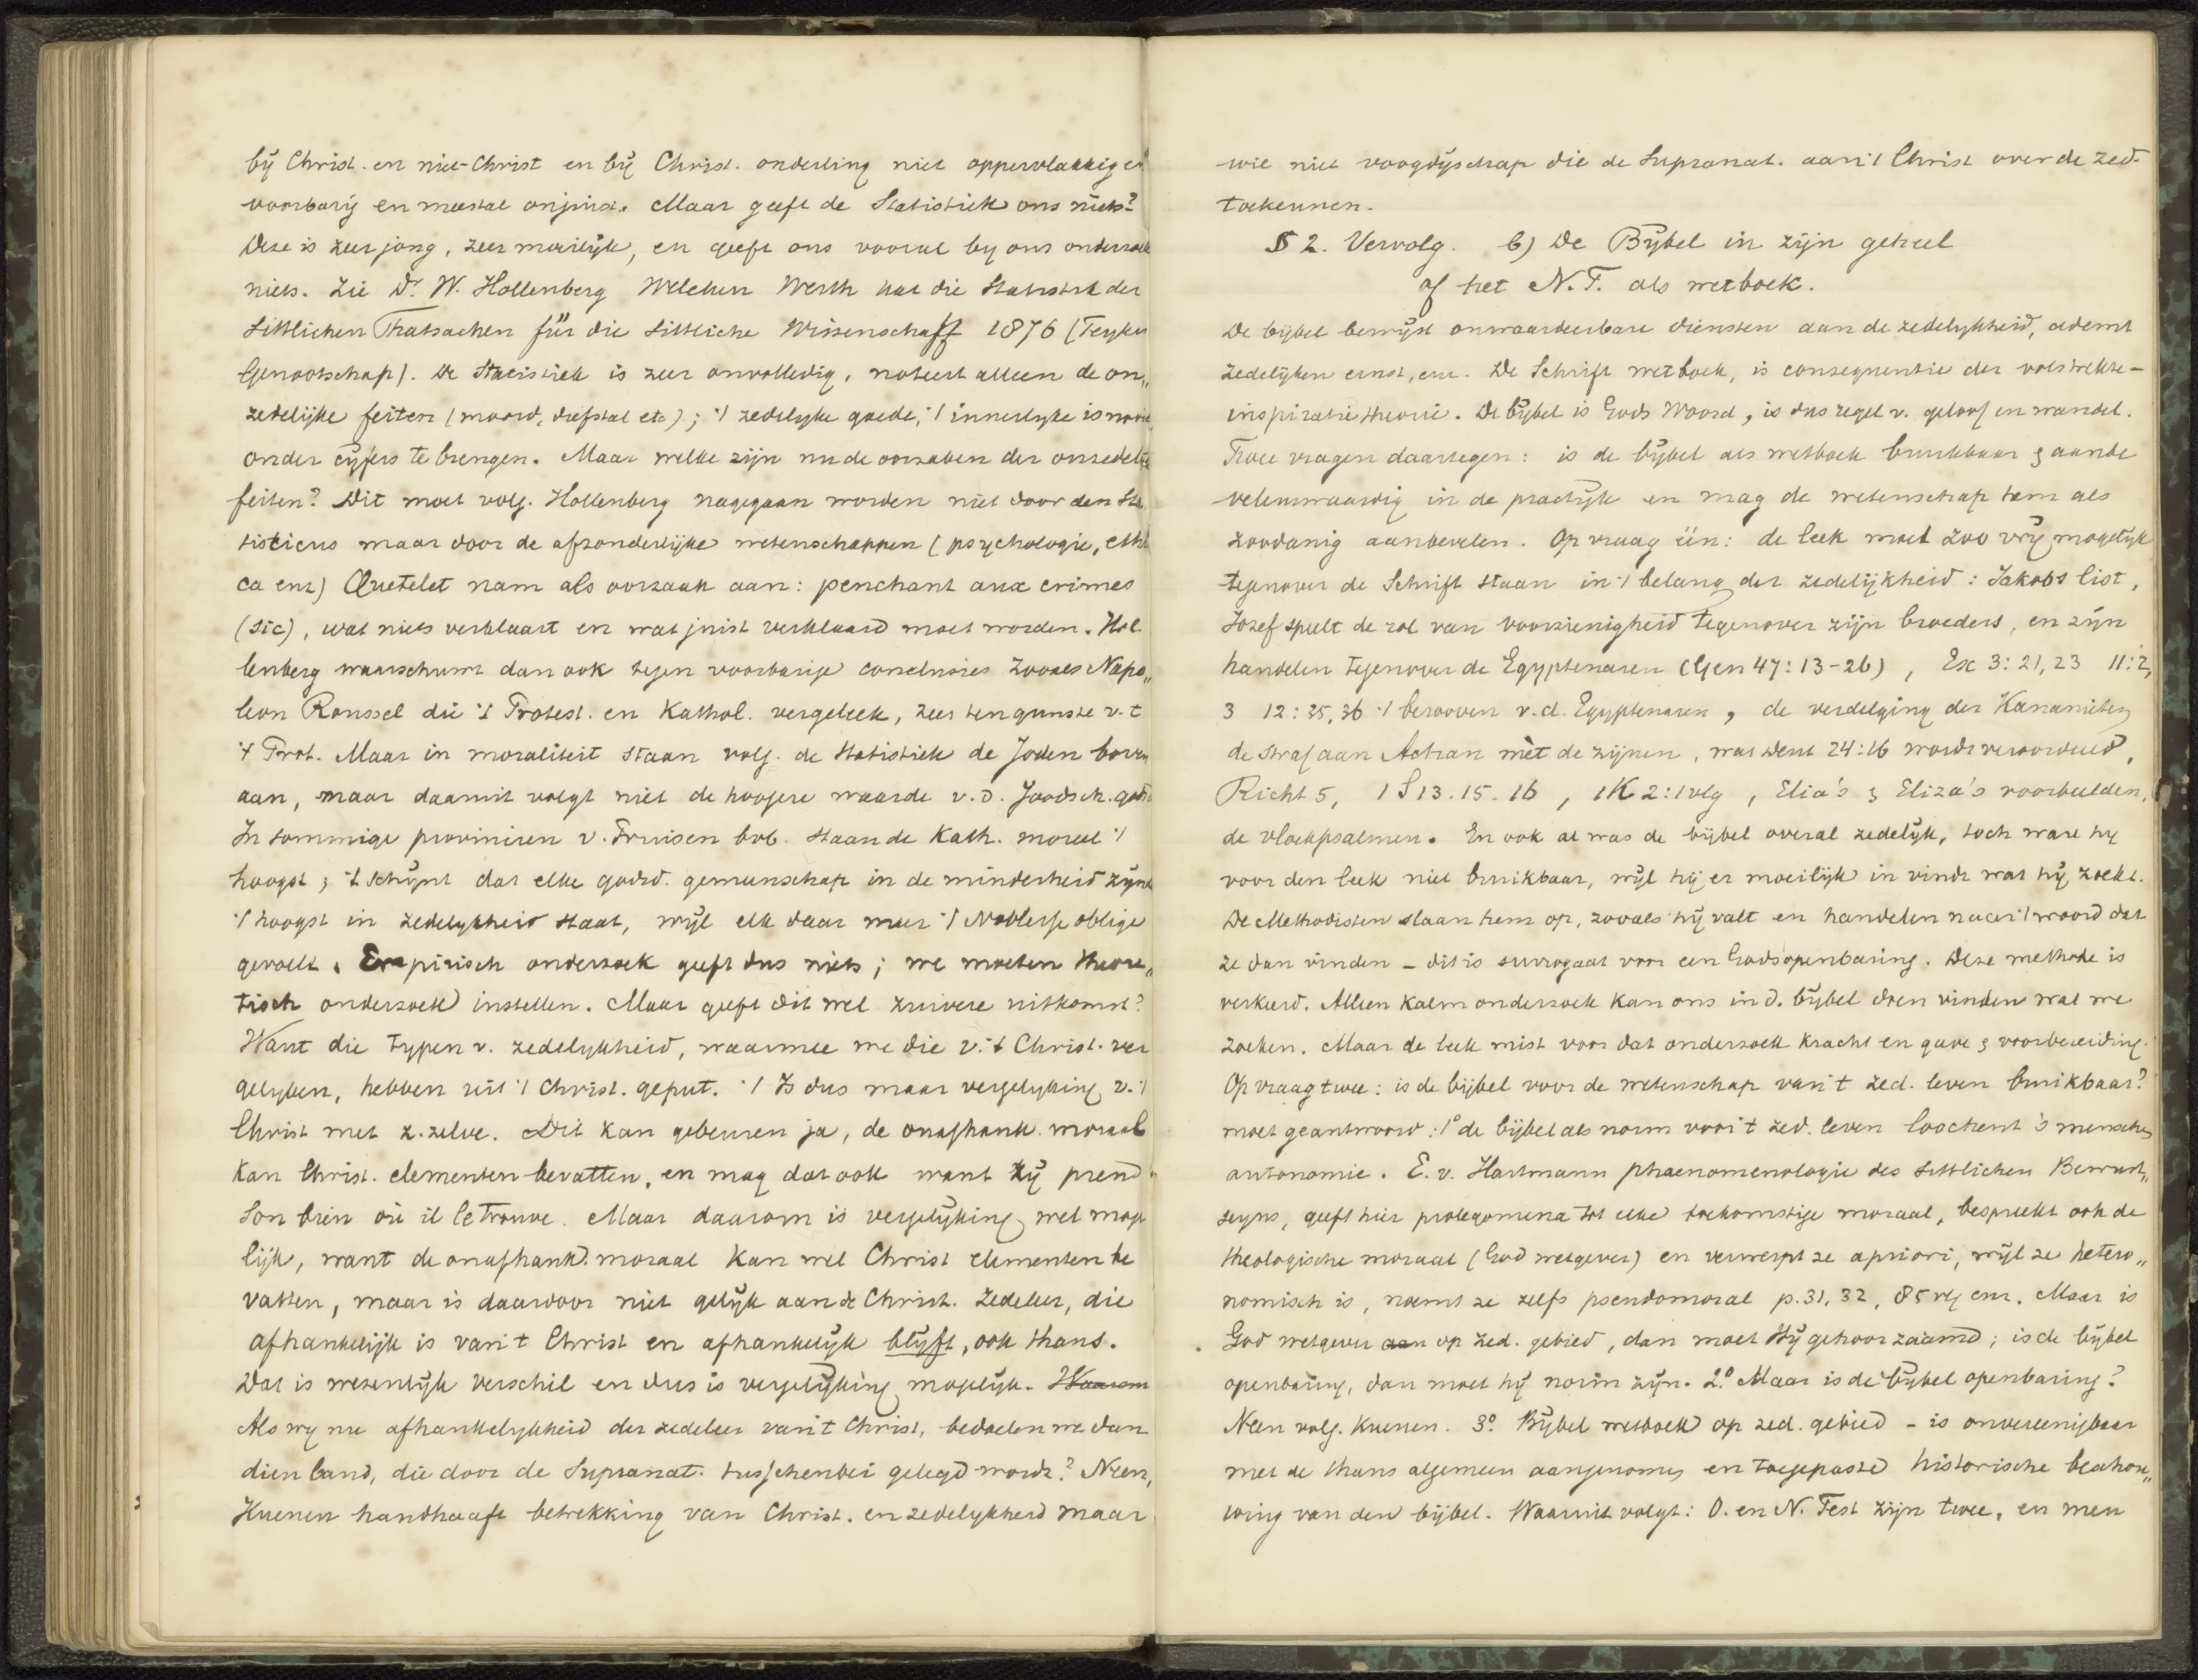 bij Christ. en niet-Christ en bij Christ. onderling niet oppervlakkig en
voorbarig en meestal onjuist. Maar geeft de Statistiek ons niets?
Deze is zeer jong, zeer moeilijk, en geeft ons vooral by ons onderzoek
niets. Zie Dr. W. Hollenberg Welchen Werth hat die Statistik der
Sittlichen Thatsachen für die Sittliche Wissenschaft 1876 (Teyler
Genootschap). De Statistiek is zeer onvolledig, noteert alleen de on„
zedelijke feiten (moord, diefstal etc); 't zedelyke goede, 't innerlyke is nooit
onder cijfers te brengen. Maar welke zijn nu de oorzaken der onzedelijke
feiten? Dit moet volg. Hollenberg nagegaan worden niet door den Sta
tisticus maar door de afzonderlijke wetenschappen (psychologie, ethi
ca enz) Quetelet nam als oorzaak aan: penchant aux crimes
(sic), wat niets verklaart en wat juist verklaard moet worden. Hol
lenberg waarschuwt dan ook tegen voorbarige conclusies zooals Napo„
leon Roussel die 't Protest. en Kathol. vergeleek, zeer ten gunste v. t
't Prot. Maar in moraliteit staan volg. de Statistiek de Joden boven
aan, maar daaruit volgt niet de hoogere waarde v. d. Joodsch. godsd
In sommige provinciën v. Pruisen bvb. staan de Kath. moreel 't
hoogst; 't schijnt dat elke godsd. gemeenschap in de minderheid zijnde
't hoogst in zedelykheid staat, wijl elk daar meer 't Noblesse oblige
gevoelt. Empirisch onderzoek geeft dus niets; we moeten theore„
tisch onderzoek instellen. Maar geeft dit wel zuivere uitkomst?
Want die typen v. zedelykheid, waarmee we die v. 't Christ. ver
gelyken, hebben uit 't Christ. geput. 't Is dus maar vergelyking v. 't
Christ met z. zelve. Dit kan gebeuren ja, de onafhank. moraal
kan Christ. elementen bevatten, en mag dat ook want zij prend
son bien où il le trouve. Maar daarom is vergelijking wel moge
lijk, want de onafhank. moraal kan wel Christ elementen be
vatten, maar is daardoor niet gelijk aan de Christ. zedeleer, die
afhankelijk is van 't Christ en afhankelijk blijft, ook thans.
Dat is wezenlijk verschil en dus is vergelijking mogelijk. Waarom
Als wy nu afhankelykheid der zedeleer van 't Christ, bedoelen we dan
dien band, die door de Supranat. tusschenbei gelegd wordt? Neen,
Kuenen handhaaft betrekking van Christ. en zedelykheid maar
wie niet voogdijschap die de Supranat. aan 't Christ over de zed.
toekennen.
§ 2. Vervolg. b) De Bijbel in zijn geheel
of het N.T. als wetboek.
De bijbel bewijst onwaardeerbare diensten aan de zedelykheid, ademt
zedelijken ernst, enz. De Schrift wetboek, is consequentie der volstrekte-
inspiratietheorie. De bijbel is Gods Woord, is dus regel v. geloof en wandel.
Twee vragen daartegen: is de bijbel als wetboek bruikbaar & aanbe
velenswaardig in de practijk en mag de wetenschap hem als
zoodanig aanbevelen. Op vraag één: de leek moet zoo vrij mogelijk
tegenover de Schrift staan in 't belang der zedelijkheid: Jakobs list,
Jozef speelt de rol van voorzienigheid tegenover zijn broeders, en zijn
handelen tegenover de Egyptenaren (Gen 47:13-26), Ex 3:21,23 11:2,
3 12:35,36 't berooven v.d. Egyptenaren, de verdelging der Kananieten
de straf aan Achan mèt de zijnen, wat Deut 24:16 wordt veroordeeld,
Richt 5, 1 S 13. 15. 16, 1K 2:1 vlg, Elia's & Eliza's voorbeelden,
de vloekpsalmen. En ook al was de bijbel overal zedelijk, toch ware hij
voor den leek niet bruikbaar, wijl hij er moeilijk in vindt wat hij zoekt.
De Methodisten slaan hem op, zooals hij valt en handelen naar 't woord dat
ze dan vinden - dit is surrogaat voor een Godsopenbaring. Deze methode is
verkeerd. Alleen kalm onderzoek kan ons in d. bijbel doen vinden wat we
zoeken. Maar de leek mist voor dat onderzoek kracht en gave & voorbereiding.
Op vraag twee: is de bijbel voor de wetenschap van 't zed. leven bruikbaar?
moet geantwoord: 1° de bijbel als norm voor 't zed. leven loochent 's menschen
autonomie. E. v. Hartmann phaenomenologie des sittlichen Bewust„
seyns, geeft hier prolegomena tot elke toekomstige moraal, bespreekt ook de
theologische moraal (God wetgever) en verwerpt ze apriori, wijl ze hetero„
nomisch is, noemt ze zelfs pseudomoral p. 31, 32, 85 vlg enz. Maar is
God wetgever aan op zed. gebied, dan moet Hij gehoorzaamd; is de bijbel
openbaring, dan moet hij norm zijn. 2° Maar is de bijbel openbaring?
Neen volg. Kuenen. 3° Bijbel wetboek op zed. gebied - is onvereenigbaar
met de thans algemeen aangenomen en toegepaste historische beschou„
wing van den bijbel. Waaruit volgt: O. en N. Test zijn twee, en men